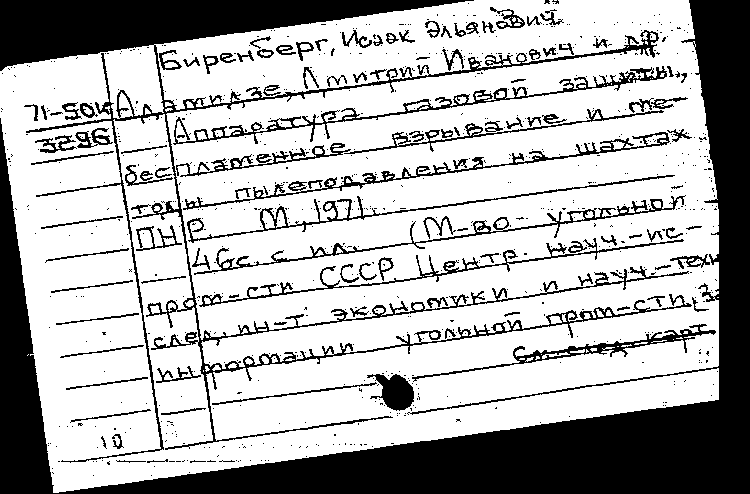 Биренберг, Исаак Эльянович
71-5014 Адамидзе, Дмитрий Иванович и др.
3296 Аппаратура газовой защиты,
беспламенное взрывание и ме-
тоды пылеподавления на шахтах
ПНР. М., 1971.
46с. с ил. (М-во угольной
пром-сти СССР. Центр. науч.-ис-
след. ин-т экономики и науч.-техн
информации угольной пром-сти,
См. след. карт.
10